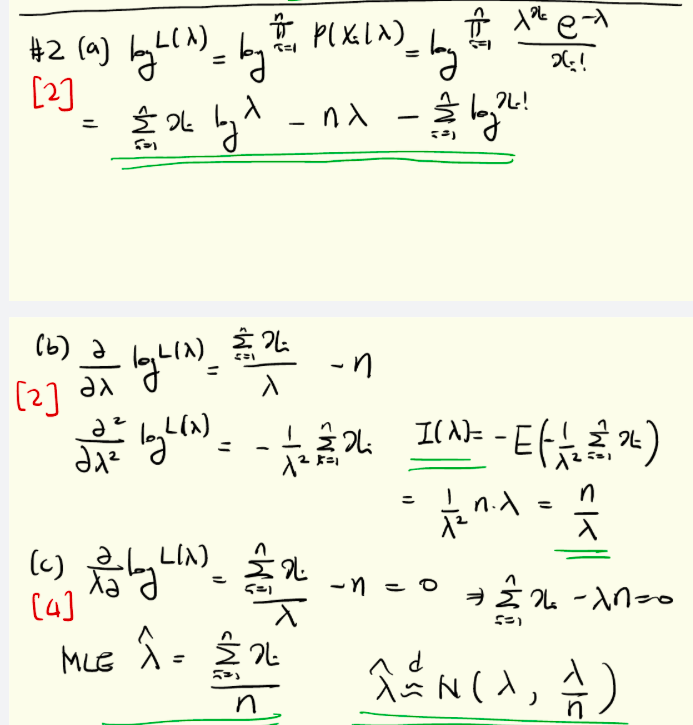 #2 (a) log L(λ) = log ∏_{i=1}^{n} P(X_i|λ) = log ∏_{i=1}^{n} λ^{x_i} e^{-λ} / x_i!
[2]
= ∑_{i=1}^{n} x_i log λ - nλ - ∑_{i=1}^{n} log x_i!
(b) ∂/∂λ log L(λ) = ∑_{i=1}^{n} x_i / λ - n
[2]
∂²/∂λ² log L(λ) = - 1/λ² ∑_{i=1}^{n} x_i I(λ) = - E(-1/λ² ∑_{i=1}^{n} x_i)
= 1/λ² n·λ = n/λ
(c) ∂/λ∂ log L(λ) = ∑_{i=1}^{n} x_i / λ - n = 0 ⇒ ∑_{i=1}^{n} x_i - λn = 0
[4]
MLE λ̂ = ∑_{i=1}^{n} x_i / n λ̂ ≈^d N(λ, λ/n)